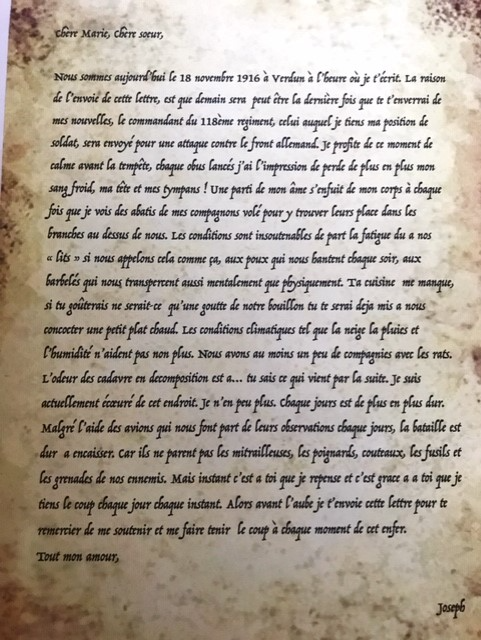 Chère Marie, Chère soeur,
Nous sommes aujourd'hui le 18 novembre 1916 à Verdun à l'heure où je t'écrit. La raison
de l'envoie de cette lettre, est que demain sera peut être la dernière fois que te t'enverrai de
mes nouvelles, le commandant du 118ème regiment, celui auquel je tiens ma position de
soldat, sera envoyé pour une attaque contre le front allemand. Je profite de ce moment de
calme avant la tempête, chaque obus lancés j'ai l'impression de perde de plus en plus mon
sang froid, ma tête et mes tympans ! Une parti de mon âme s'enfuit de mon corps à chaque
fois que je vois des abatis de mes compagnons volé pour y trouver leurs place dans les
branches au dessus de nous. Les conditions sont insoutenables de part la fatigue du a nos
« lits » si nous appelons cela comme ça, aux poux qui nous hantent chaque soir, aux
barbelés qui nous transpercent aussi mentalement que physiquement. Ta cuisine me manque,
si tu goûterais ne serait-ce qu'une goutte de notre bouillon tu te serai deja mis a nous
concocter une petit plat chaud. Les conditions climatiques tel que la neige la pluies et
l'humidité n'aident pas non plus. Nous avons au moins un peu de compagnies avec les rats.
L'odeur des cadavre en decomposition est a... tu sais ce qui vient par la suite. Je suis
actuellement écœuré de cet endroit. Je n'en peu plus. Chaque jours est de plus en plus dur.
Malgré l'aide des avions qui nous font part de leurs observations chaque jours, la bataille est
dur a encaisser. Car ils ne parent pas les mitrailleuses, les poignards, couteaux, les fusils et
les grenades de nos ennemis. Mais instant c'est a toi que je repense et c'est grace a a toi que je
tiens le coup chaque jour chaque instant. Alors avant l'aube je t'envoie cette lettre pour te
remercier de me soutenir et me faire tenir le coup à chaque moment de cet enfer.
Tout mon amour,
Joseph